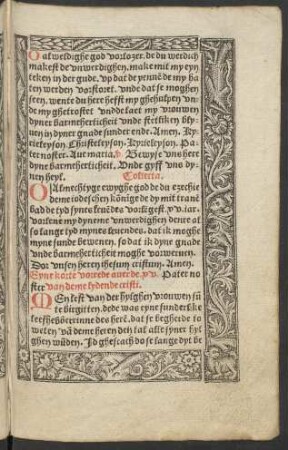 O al weldighe god vorlozer. de du werdich
makest de vnwerdighen. make mit my eyn
teken in der gude. vp dat de yenne de my ha
ten werden vorstoret. vnde dat se moghen
seen. wente du here hefft my ghehulpen vn
de my ghetrostet vnde laet my vrouwen
dyner barmeherticheit vnde steetliken bly
uen in dyner gnade sunder ende. Amen. Ky
rieleyson. Christeleyson. Kyrieleyson. Pa
ter noster. Aue maria. v Bewyse vns here
dyne barmeherticheit. Vnde gyff vns dy
nen heyl. Collecta.
O Almechtyge ewyghe god de du ezechie
deme iodeschen könige de dy mit trane
bad de tyd synes leuēdes vorlēgest. xv. iar
vorlene my dyneme vnwerdighen denre al
so lange tyd mynes leuendes. dat ik moghe
myne sunde bewenen. so dat ik dyne gnade
vnde barmeherticheit moghe vorwernen
Dor vnsen heren ihesum cristum. Amen.
Eyne korte vorrede auer de. xv. Pater no
ster van deme lydende cristi.
MEn lest van der hylghen vrouwen sū
te birgitten. dede was eyne sunderlike
leefhebberinne des herē. dat se begherde to
weten vā deme heren den tal alle syner hyl
ghen wūden. Id gheschach do se lange dyt be